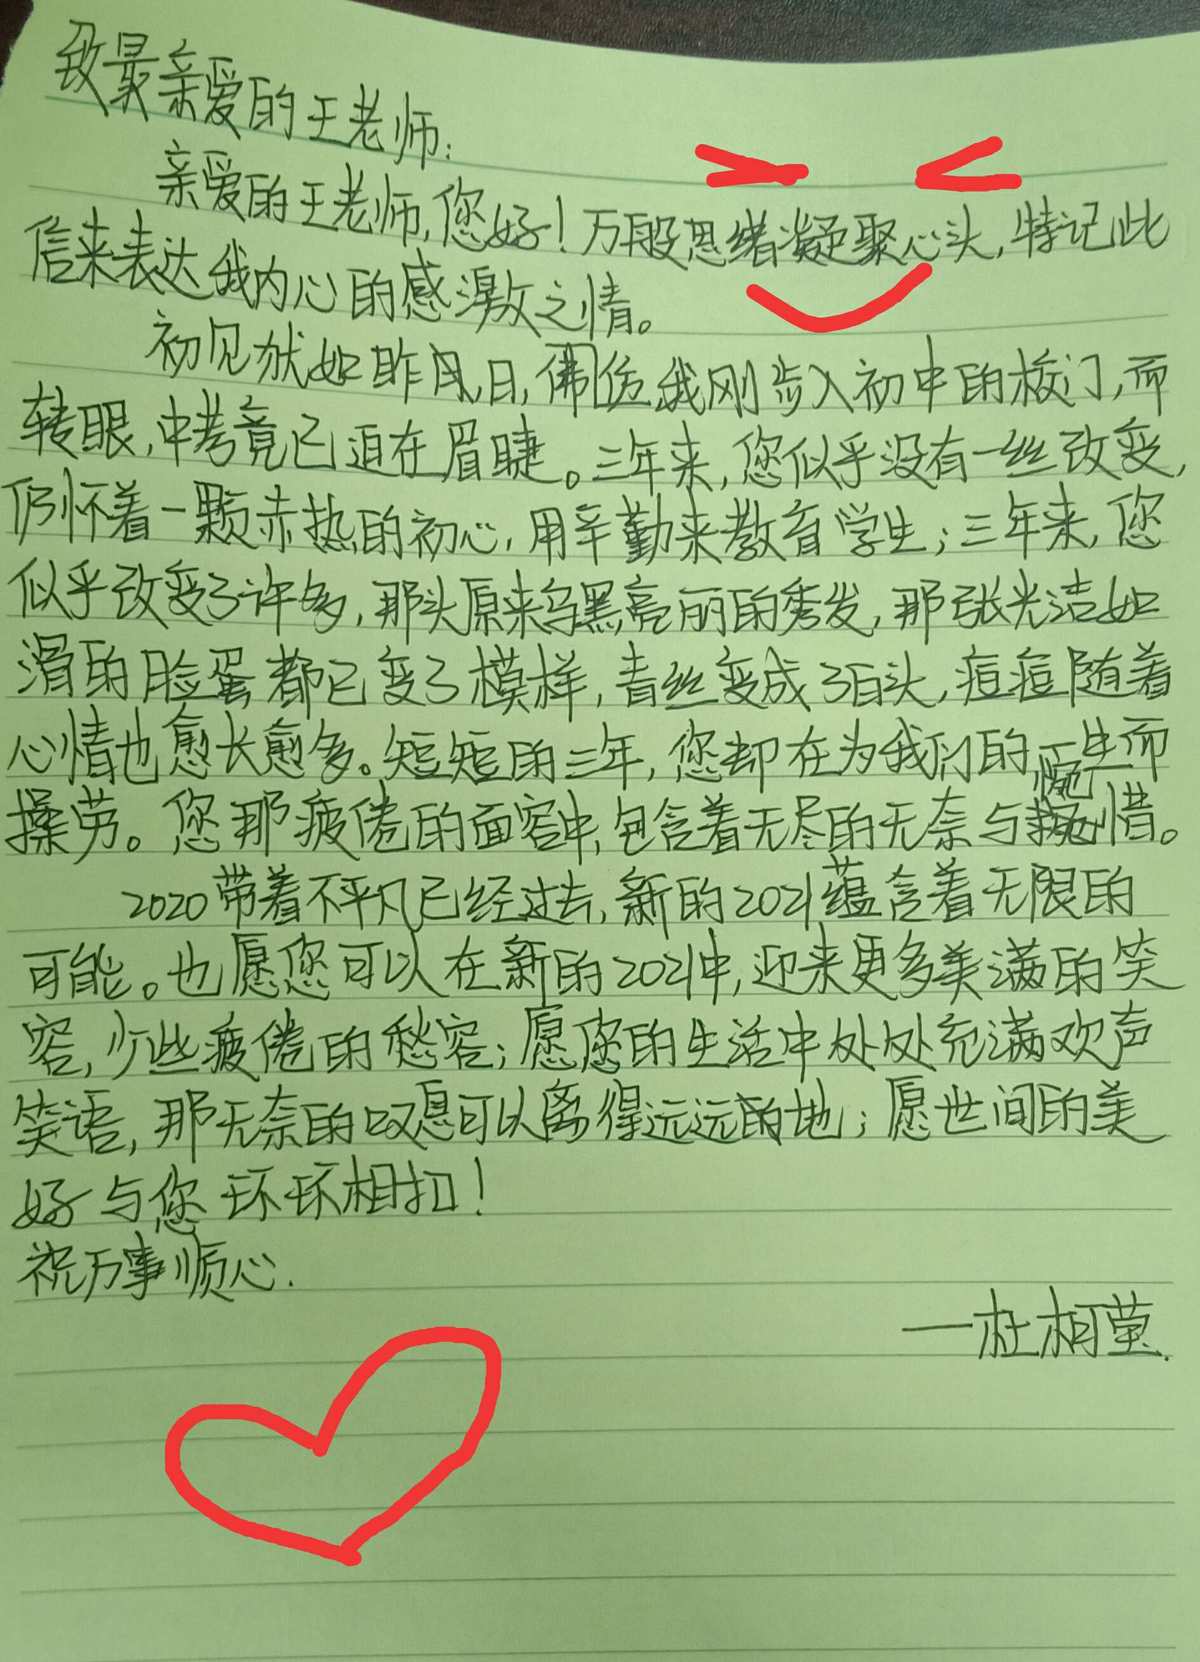 致最亲爱的王老师：
亲爱的王老师，您好！万般思绪凝聚心头，特记此
信来表达我内心的感激之情。
初见犹如昨日，佛彷我刚步入初中的校门，而
转眼，中考竟已迫在眉睫。三年来，您似乎没有一丝改变，
仍怀着一颗赤热的初心，用辛勤来教育学生；三年来，您
似乎改变了许多，那头原来乌黑亮丽的秀发，那张光洁如
滑的脸蛋都已变了模样，青丝变成了白头，痘痘随着
心情也愈长愈多。短短的三年，您却在为我们的一生而
操劳。您那疲倦的面容中，包含着无尽的无奈与惋惜。
2020带着不平凡已经过去，新的2021蕴含着无限的
可能。也愿您可以在新的2021中，迎来更多美满的笑
容，少些疲倦的愁容；愿您的生活中处处充满欢声
笑语，那无奈的叹息可以离得远远的地；愿世间的美
好与您环环相扣！
祝万事顺心.
——杜柯莹.